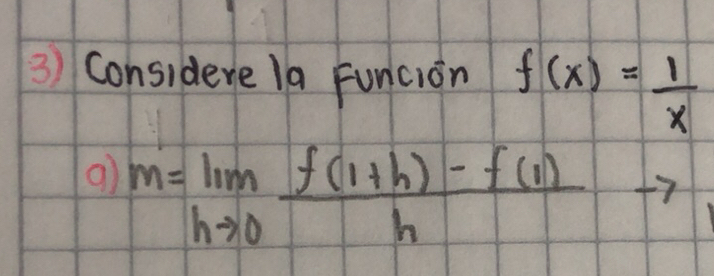 3) Considere la Función f(x) = 1/x
a) m = lim h→0 (f(1+h) - f(1))/h →